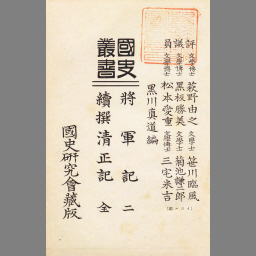 評議員
文學博士 萩野由之 文學士 笹川臨風
文學博士 黑板勝美 文學士 菊池謙二郎
文學博士 松本愛重 文學博士 三宅米吉
黑川真道編
國史叢書
將軍記 二
續撰清正記 全
國史研究會藏版